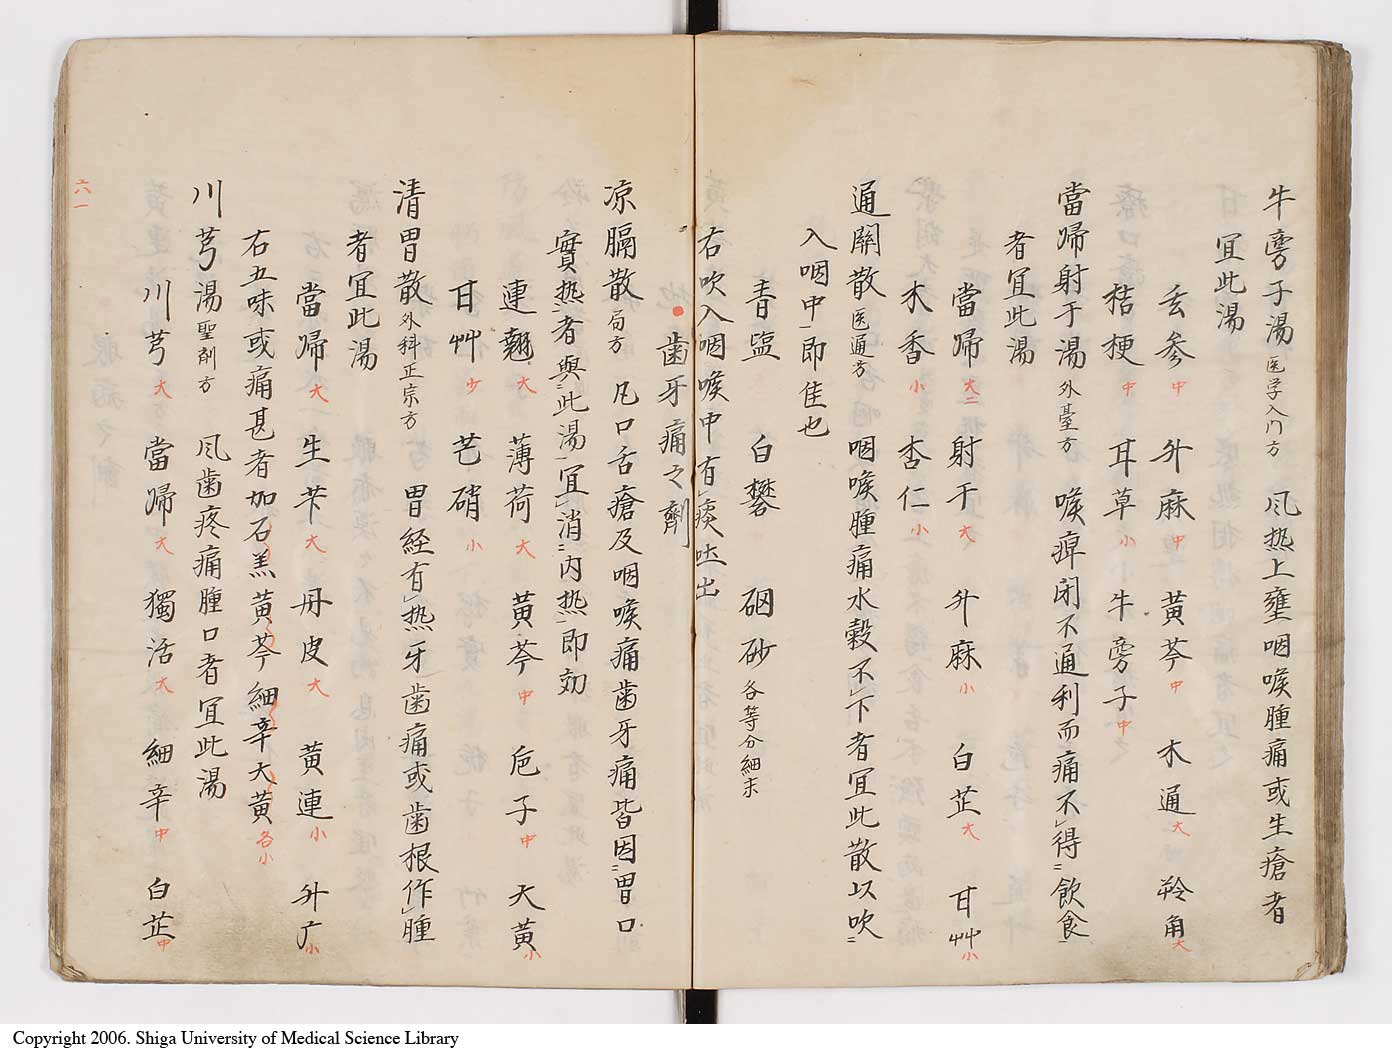 牛旁子湯 医学入門方 風热上壅咽喉腫痛或生瘡者
宜此湯
玄参 中 升麻 中 黄芩 中 木通 大 羚角 大
桔梗 中 耳草 小 牛旁子 中
當帰射于湯 外臺方 喉痺閉不通利而痛不得飲食
者宜此湯
當帰 大二 射于 大 升麻 小 白芷 大 甘艸 小
木香 小 杏仁 小
通関散 医通方 咽喉腫痛水穀不下者宜此散以吹
入咽中即佳也
青盬 白礬 硇砂 各等分細末
右吹入咽喉中有痰吐出
齒牙痛之劑
凉膈散 局方 凡口舌瘡及咽喉痛齒牙痛皆因胃口
實热者與此湯宜消内热即効
連翹 大 薄荷 大 黄芩 中 巵子 中 大黄 小
甘艸 少 芒硝 小
清胃散 外科正宗方 胃経有热牙歯痛或歯根作腫
者宜此湯
當帰 大 生芐 大 丹皮 大 黄連 小 升广 小
右五味或痛甚者加石羔黄芩細辛大黄 各小
川芎湯 聖剤方 風歯疼痛腫口者宜此湯
川芎 大 當帰 大 獨活 大 細辛 中 白芷 中
六一
Copyright 2006. Shiga University of Medical Science Library